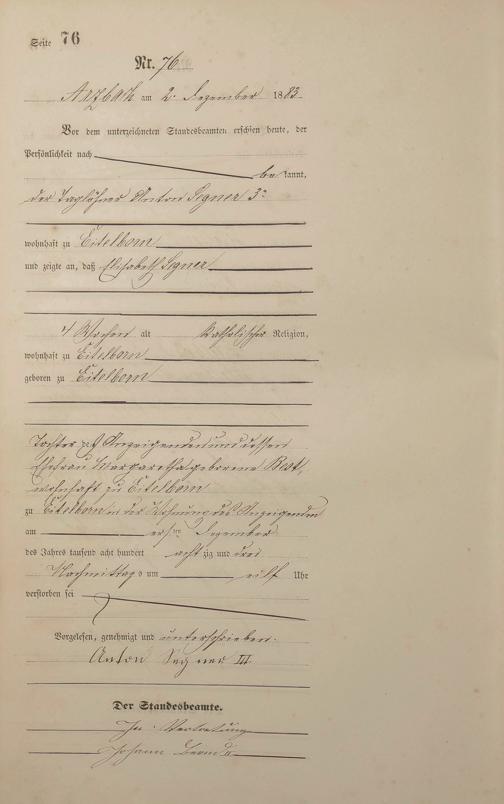 Seite 76
Nr. 76
Arzbach am 2. Dezember 1883
Vor dem unterzeichneten Standesbeamten erschien heute, der
Persönlichkeit nach
be kannt,
der Taglöhner Anton Segner 3r
wohnhaft zu Eitelborn
und zeigte an, daß Elisabeth Segner
4 Wochen alt katholischer Religion,
wohnhaft zu Eitelborn
geboren zu Eitelborn
Tochter des Anzeigenden und dessen
Ehefrau Margaretha geborene Best,
wohnhaft zu Eitelborn
zu Eitelborn in der Wohnung des Anzeigenden
am ersten Dezember
des Jahres tausend acht hundert achtzig und drei
Nachmittags um eilf Uhr
verstorben sei
Vorgelesen, genehmigt und unterschrieben.
Anton Segner III
Der Standesbeamte.
In Vertretung
Johann